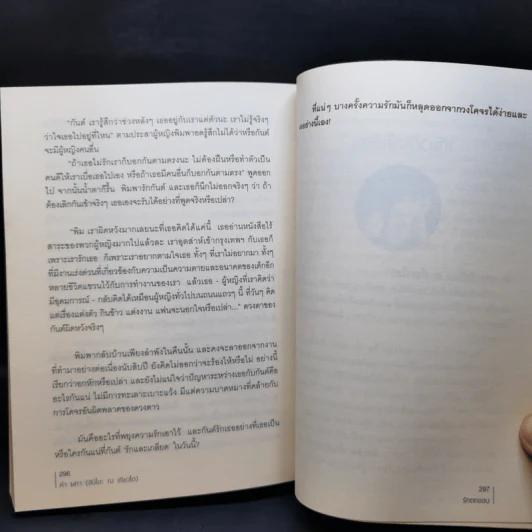 "กันต์ เรารู้สึกว่าช่วงหลังๆ เธออยู่กับเราแต่ตัวนะ เราไม่รู้จริงๆ
ว่าใจเธอไปอยู่ที่ไหน" ตามประสาผู้หญิงพิมพาอดรู้สึกไม่ได้ว่าหรือกันต์
จะมีผู้หญิงคนอื่น
"ถ้าเธอไม่รักเราก็บอกกันตามตรงนะ ไม่ต้องฝืนหรือทำตัวเป็น
คนดีให้เราเบื่อเธอไปเอง หรือถ้าเธอมีคนอื่นก็บอกกันตามตรง" พูดออก
ไป จากนั้นน้ำตาก็รื้น พิมพารักกันต์ และเธอก็นึกไม่ออกจริงๆ ว่า ถ้า
ต้องเลิกกันเข้าจริงๆ เธอเองจะรับได้อย่างที่พูดจริงหรือเปล่า?
"พิม เราผิดหวังมากเลยนะที่เธอคิดได้แค่นี้ เธออ่านหนังสือไร้
สาระของพวกผู้หญิงมากไปแล้วละ เราอุตส่าห์เข้ากรุงเทพฯ กับเธอก็
เพราะเรารักเธอ ก็เพราะเราอยากตามใจเธอ ทั้งๆ ที่เราไม่อยากมา ทั้งๆ
ที่มีงานเร่งด่วนที่เกี่ยวข้องกับความเป็นความตายและอนาคตของเด็กอีก
หลายชีวิตแขวนไว้กับการทำงานของเรา แล้วเธอ - ผู้หญิงที่เราคิดว่า
มีอุดมการณ์ - กลับคิดได้เหมือนผู้หญิงทั่วไปบนถนนแถวๆ นี้ ที่วันๆ คิด
แต่เรื่องแต่งตัว กินข้าว แต่งงาน แฟนจะนอกใจหรือเปล่า..." ดวงตาของ
กันต์ผิดหวังจริงๆ
พิมพากลับบ้านเพียงลำพังในคืนนั้น และคงจะลาออกจากงาน
ที่ทำมาอย่างต่อเนื่องนับสิบปี ยังคิดไม่ออกว่าจะร้องไห้หรือไม่ อย่างนี้
เรียกว่าอกหักหรือเปล่า และยังไม่แน่ใจว่าปัญหาระหว่างเธอกับกันต์คือ
อะไรกันแน่ ไม่มีการทะเลาะเบาะแว้ง มีแต่ความบาดหมางที่คล้ายกับ
การโคจรอันผิดพลาดของดวงดาว
มันคืออะไรที่พยุงความรักเอาไว้ และกันต์รักเธออย่างที่เธอเป็น
หรือใครกันแน่ที่กันต์ 'รักและเกลียด' ในวันนี้?
296
คำ ผกา
ที่แน่ๆ บางครั้งความรักมันก็หลุดออกจากวงโคจรได้ง่ายและ
297
รักออกอบ